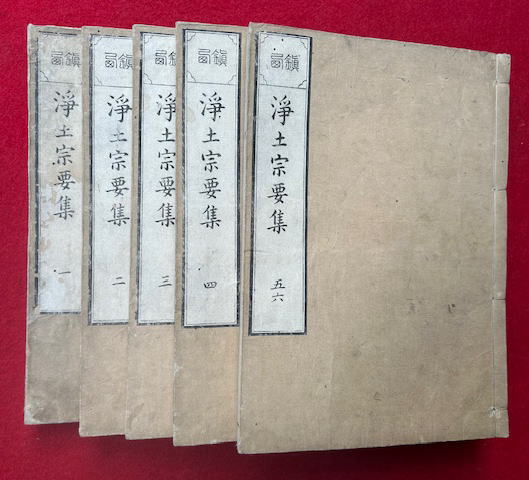 鎮西
淨土宗要集 一
鎮西
淨土宗要集 二
鎮西
淨土宗要集 三
鎮西
淨土宗要集 四
鎮西
淨土宗要集 五六